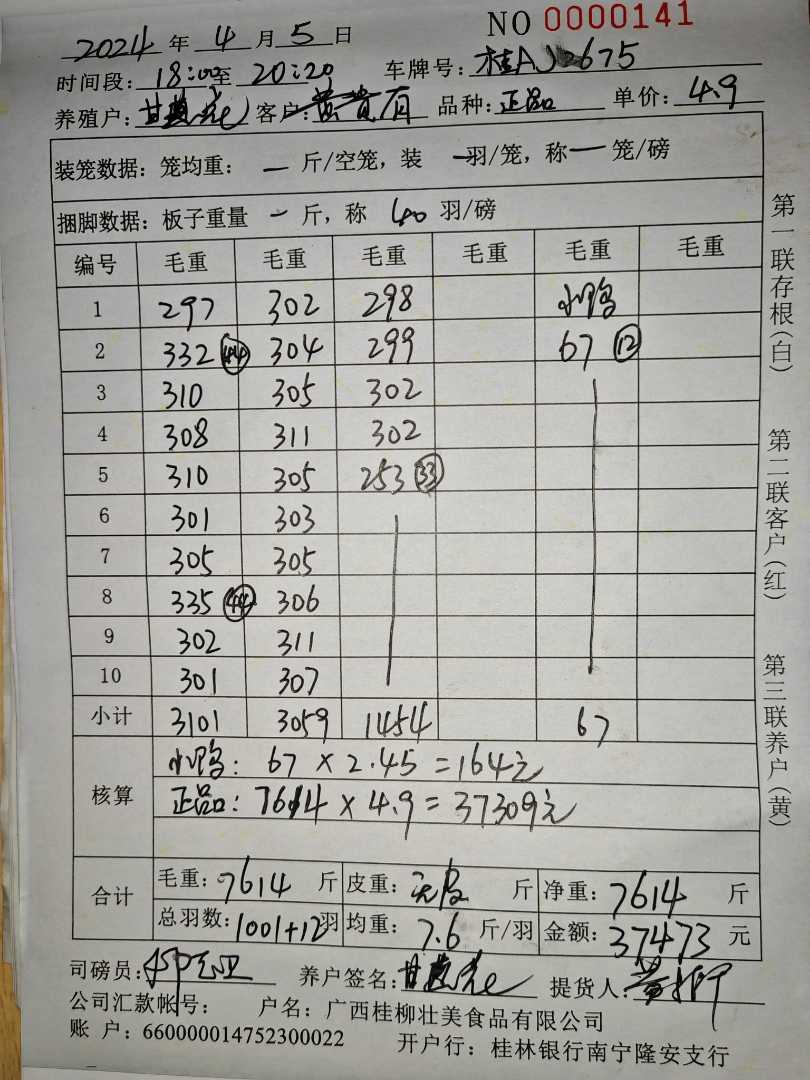 NO 0000141
2024 年 4 月 5 日
时间段: 18:00 至 20:20 车牌号: 桂AJ2675
养殖户: 甘 花 客户: 黄贵有 品种: 正品 单价: 4.9
装笼数据: 笼均重: — 斤/空笼, 装 — 羽/笼, 称 — 笼/磅
捆脚数据: 板子重量 — 斤, 称 40 羽/磅
编号 毛重 毛重 毛重 毛重 毛重 毛重
1 297 302 298 小鸭
2 332 (44) 304 299 67 (12)
3 310 305 302
4 308 311 302
5 310 305 253 (33)
6 301 303
7 305 305
8 335 (44) 306
9 302 311
10 301 307
小计 3101 3059 1454 67
核算
小鸭: 67 × 2.45 = 164元
正品: 7614 × 4.9 = 37309元
合计
毛重: 7614 斤 皮重: 无皮 斤 净重: 7614 斤
总羽数: 1001+12 羽 均重: 7.6 斤/羽 金额: 37473 元
司磅员: 养户签名: 甘 花 提货人: 黄
公司汇款帐号: 户名: 广西桂柳壮美食品有限公司
账 户: 660000014752300022 开户行: 桂林银行南宁隆安支行
第一联存根(白) 第二联客户(红) 第三联养户(黄)